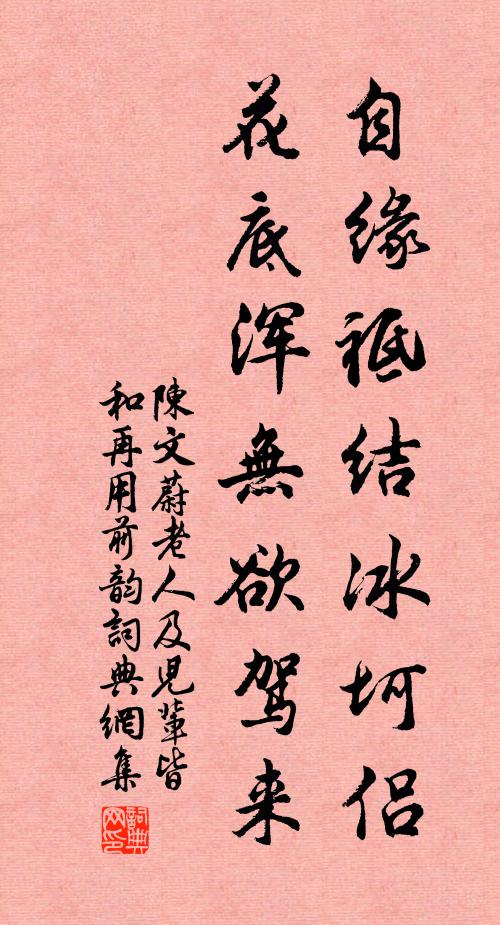 自缘祗结冰坷侣
花底浑無欲驾来
陳文蔚老人及児輩皆
和再用前韵詞典網集
詞典网印